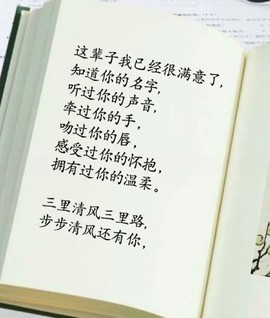 这辈子我已经很满意了,
知道你的名字,
听过你的声音,
牵过你的手,
吻过你的唇,
感受过你的怀抱,
拥有过你的温柔。
三里清风三里路,
步步清风还有你,